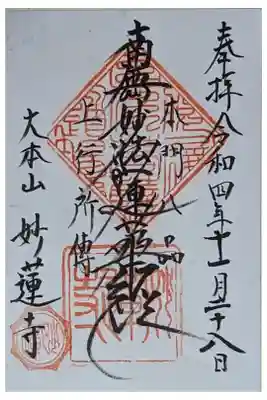 奉拝 令和四年十一月二十八日
本門八品
南無妙法蓮華経
上行所傳
大本山 妙蓮寺